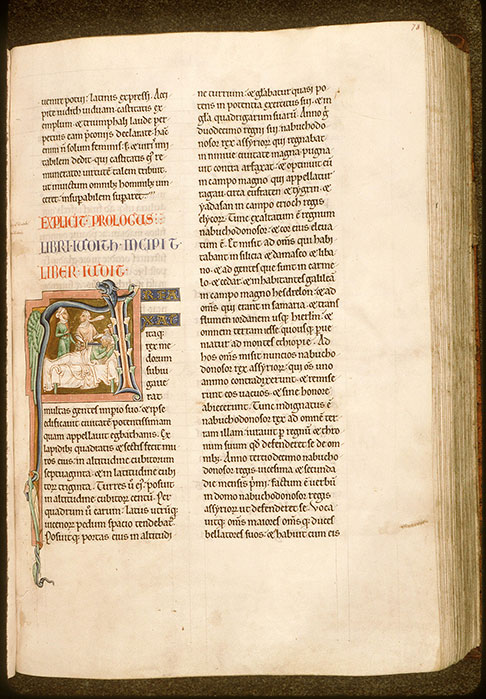 uenire potui: latinis expressi. Acci
pite iudith uiduam. castitatis ex
emplum. & triumphali laude per
petuis eam pconiis declarate. hac
enim ñ solum feminis. s; & uiris imi
tabilem dedit. qui castitatis ei' re
munerator uirtutē talem tribuit.
ut inuictum omnib; hominib; uin
ceret. insupabilem suparet.
EXPLICIT PROLOGUS
LIBRI IUDITH. INCIPIT
LIBER. IUDIT.
ARFA
XAT
itaq;
rex me
dorum
subiu
gaue
rat
multas gentes impio suo. & ipse
edificauit ciuitatē potentissimam
quam appellauit egbathanis. Ex
lapidib; quadratis & sectis fecit mu
ros eius. in altitudine cubitorum
septuaginta. & in latitudine cubi
tor triginta. Turres ū ei' posuit
in altitudine cubitor centū. Per
quadrum ū earum. latus utrūq;
uicenor pedum spacio tendebat.
Posuitq; portas eius in altitudi
78
ne turrium. & glabatur quasi po
tens in potentia exercitus sui. & in
gla quadrigarum suarū. Anno g
duodecimo regni sui nabuchodo
nosor rex assyrior qui regnabat
in niniue ciuitate magna. pugna
uit contra arfaxat. & optinuit eū
in campo magno qui appellatur
ragau. circa eufraten & tygrin. &
yadasan in campo erioch regis
elycor. Tunc exaltatum ē regnum
nabuchodonosor. & cor eius eleua
tum ē. Et misit ad om̄s qui habi
tabant in silicia & damasco & liba
no. & ad gentes que sunt in carme
lo. & cedar. & inhabitantes galileā
in campo magno hesdrelon. & ad
om̄s qui erant in samaria. & trans
flumen iordanem usq; hierlm. &
omnem terram iesse quousq; pue
niatur ad montes ethiopie. Ad
hos om̄s misit nuncios nabucho
donosor rex assyrior. qui om̄s uno
animo contradixerunt. & remise
runt eos uacuos. & sine honore
abiecerunt. Tunc indignatus ē
nabuchodonosor rex ad omnē ter
ram illam. iurauit p regnū & thro
num suum qd defenderet se de om
nib;. Anno terciodecimo nabucho
donosor regis. uicesima & secunda
die mensis pmi. factum ē uerbū
in domo nabuchodonosor regis
assyrior ut defenderet se. Voca
uitq; om̄s maiores om̄sq; duces
bellatores suos. & habuit cum eis